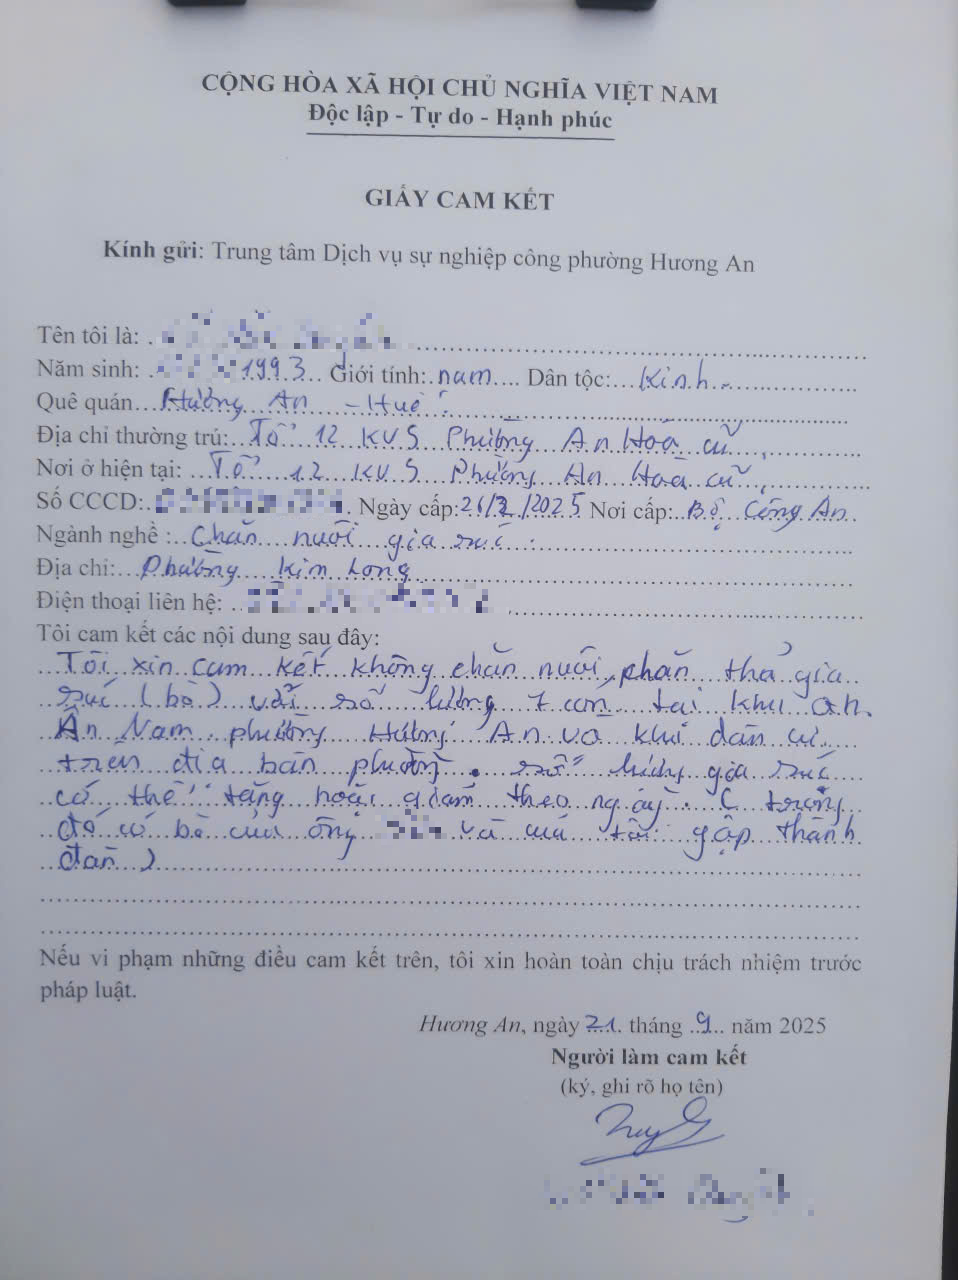 CỘNG HÒA XÃ HỘI CHỦ NGHĨA VIỆT NAM
Độc lập - Tự do - Hạnh phúc
GIẤY CAM KẾT
Kính gửi: Trung tâm Dịch vụ sự nghiệp công phường Hương An
Tên tôi là:
Năm sinh: 1993 Giới tính: nam Dân tộc: Kinh
Quê quán Hương An - Huế
Địa chỉ thường trú: Tổ 12 KV5 Phường An Hoà cũ,
Nơi ở hiện tại: Tổ 12 KV5 Phường An Hoà cũ,
Số CCCD: Ngày cấp: /2025 Nơi cấp: Bộ Công An
Ngành nghề : Chăn nuôi gia súc.
Địa chỉ: Phường Kim Long
Điện thoại liên hệ:
Tôi cam kết các nội dung sau đây:
Tôi xin cam kết không chăn nuôi, phăn thả gia
súc (bò) với số lượng 7 con tại khu
Ân Nam phường Hương An và khu dân cư
trên địa bàn phường. số lượng gia súc
có thể tăng hoặc giảm theo ngày. ( trong
đó có bò của ông và của tôi gộp thành
đàn )
Nếu vi phạm những điều cam kết trên, tôi xin hoàn toàn chịu trách nhiệm trước
pháp luật.
Hương An, ngày 21 tháng 9 năm 2025
Người làm cam kết
(ký, ghi rõ họ tên)